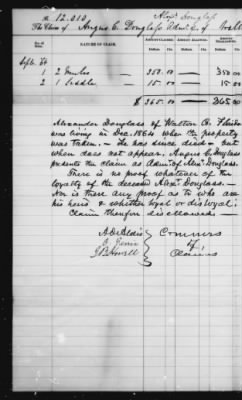 12.010
Alex.r Douglass
The Claim of Angus C. Douglass Adm.r of Walt
NATURE OF CLAIM. AMOUNT CLAIMED. AMOUNT ALLOWED. AMOUNT DISALLOWED.
Dollars Cts. Dollars Cts. Dollars Cts.
Sept. 64
1 2 Mules 350.00 350.00
2 1 Saddle 15.00 15.00
$ 365.00 365.00
Alexander Douglass of Walton Co. Florida
was living in Dec. 1864 when the property
was taken. – He was since died – but
when does not appear. Angus C. Douglass
presents the claim as Adm.r of Alex.r Douglass.
There is no proof whatever of the
loyalty of the deceased Alex.r Douglass. –
Nor is there any proof as to who are
his heirs & whether loyal or disloyal.
Claim therefore disallowed. –
A.O. Aldis
O. Ferriss
J.B. Howell
Commrs
of
Claims